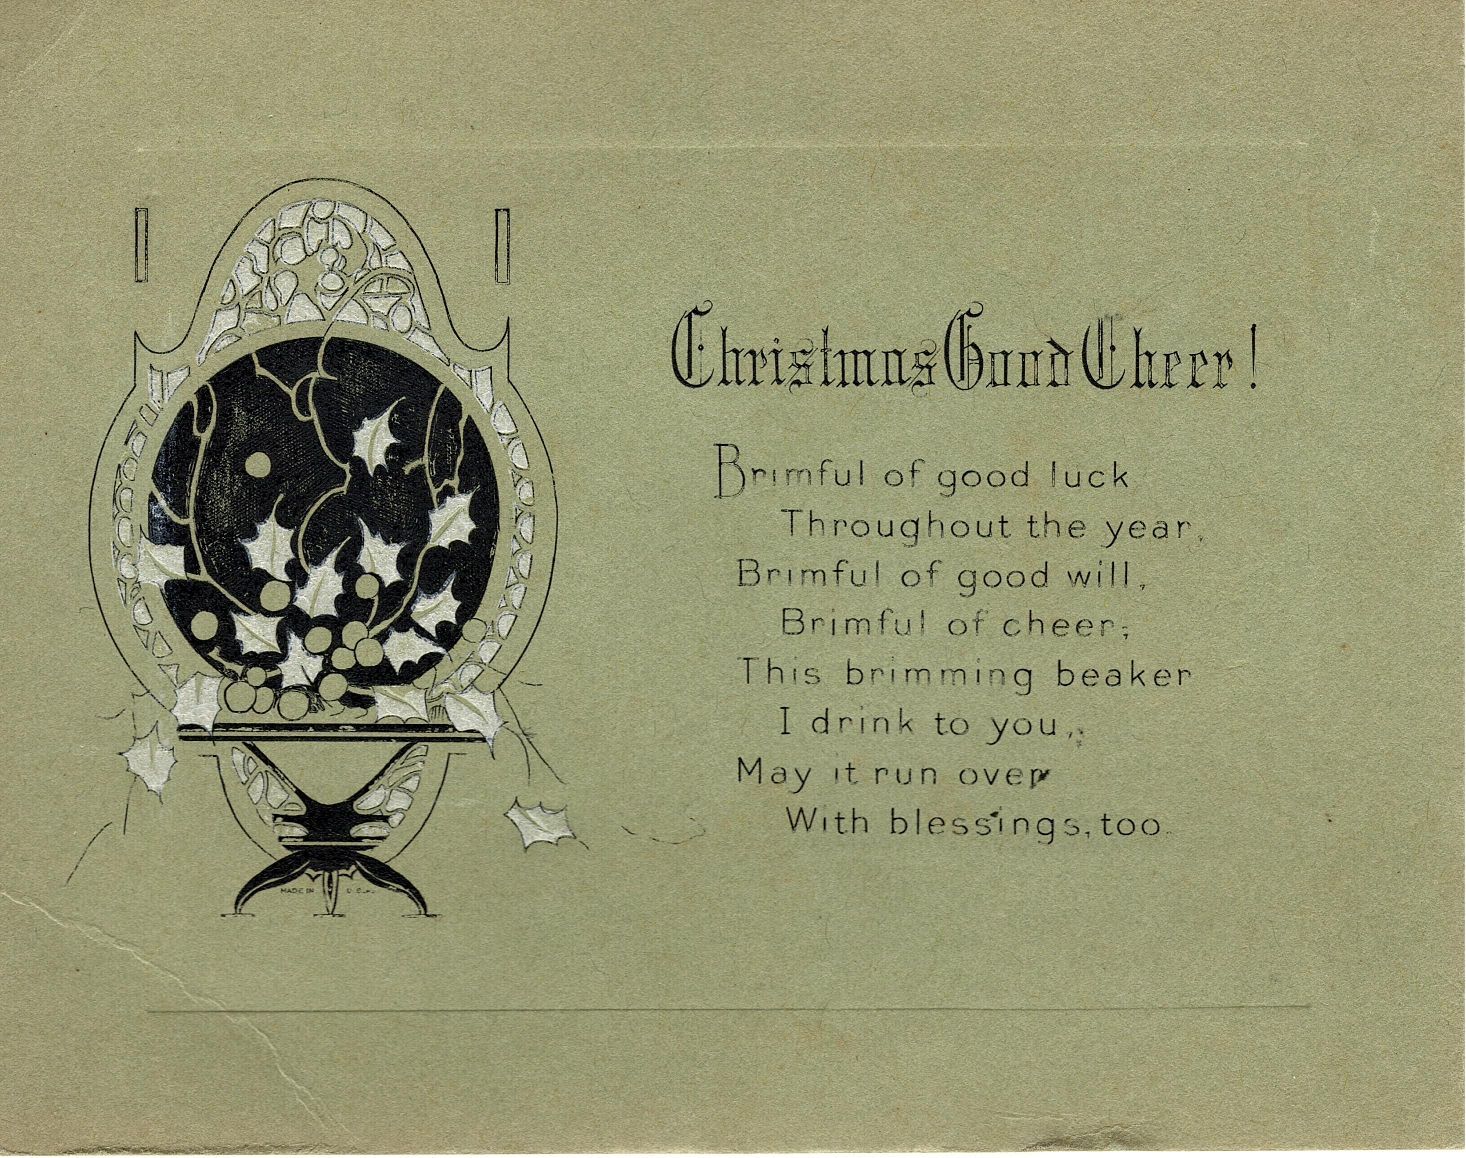 Christmas Good Cheer!
Brimful of good luck
Throughout the year,
Brimful of good will,
Brimful of cheer;
This brimming beaker
I drink to you,
May it run over
With blessings, too.
MADE IN U.S.A.